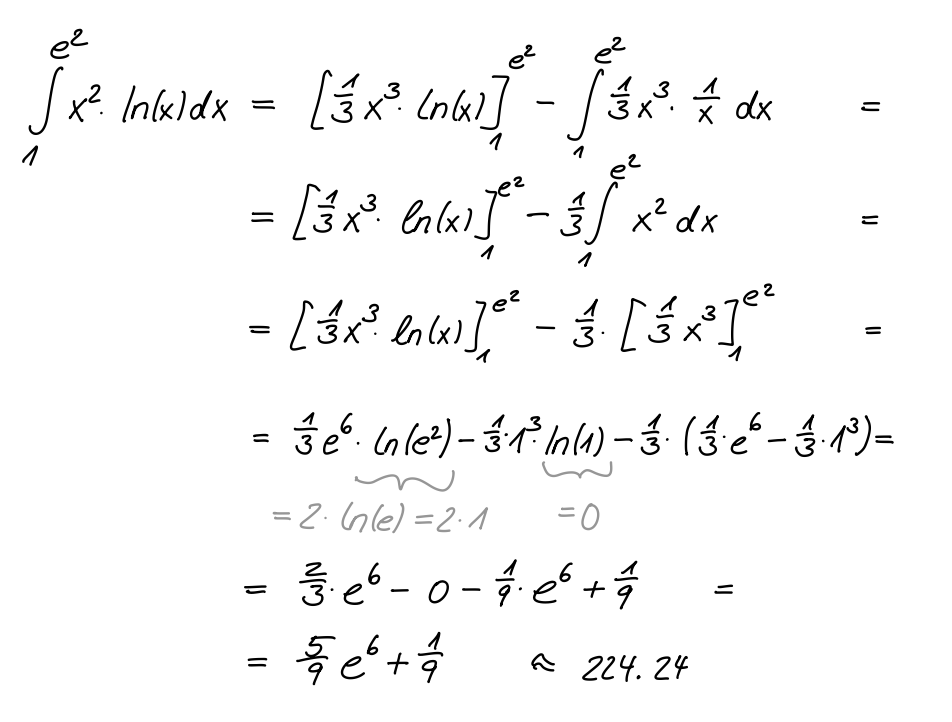 ∫₁^(e²) x² · ln(x) dx = [1/3 x³ · ln(x)]₁^(e²) − ∫₁^(e²) 1/3 x³ · 1/x dx =
= [1/3 x³ · ln(x)]₁^(e²) − 1/3 ∫₁^(e²) x² dx =
= [1/3 x³ · ln(x)]₁^(e²) − 1/3 · [1/3 x³]₁^(e²) =
= 1/3 e⁶ · ln(e²) − 1/3 · 1³ · ln(1) − 1/3 · (1/3 · e⁶ − 1/3 · 1³) =
= 2 · ln(e) = 2 · 1 = 0
= 2/3 · e⁶ − 0 − 1/9 · e⁶ + 1/9 =
= 5/9 e⁶ + 1/9 ≈ 224.24